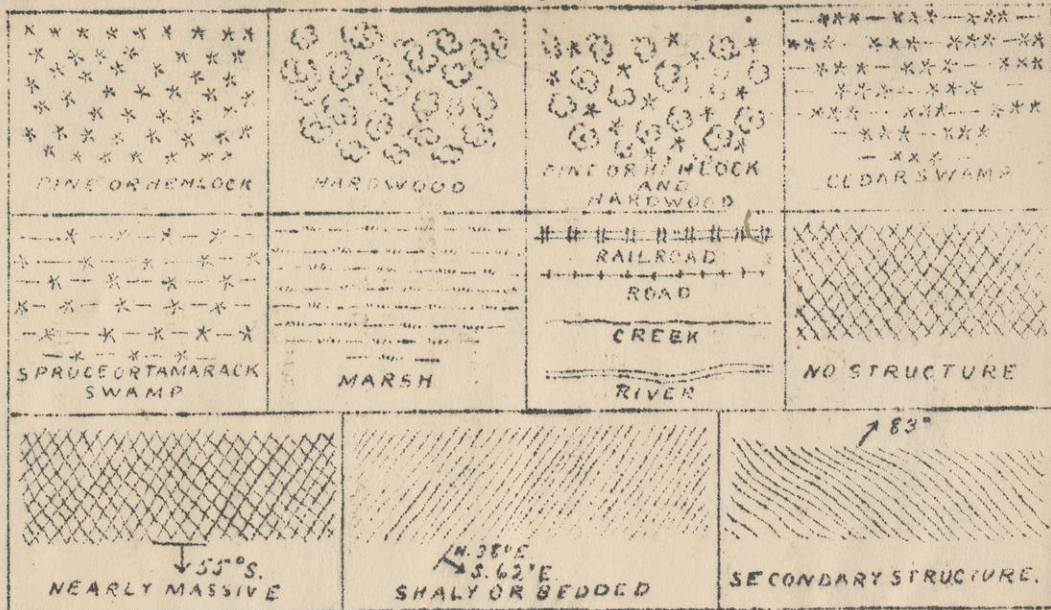 PINE OR HEMLOCK
HARDWOOD
PINE OR HEMLOCK
AND
HARDWOOD
CEDAR SWAMP
SPRUCE OR TAMARACK
SWAMP
MARSH
RAILROAD
ROAD
CREEK
RIVER
NO STRUCTURE
55° S.
NEARLY MASSIVE
N. 38° E.
S. 62° E.
SHALY OR BEDDED
83°
SECONDARY STRUCTURE.